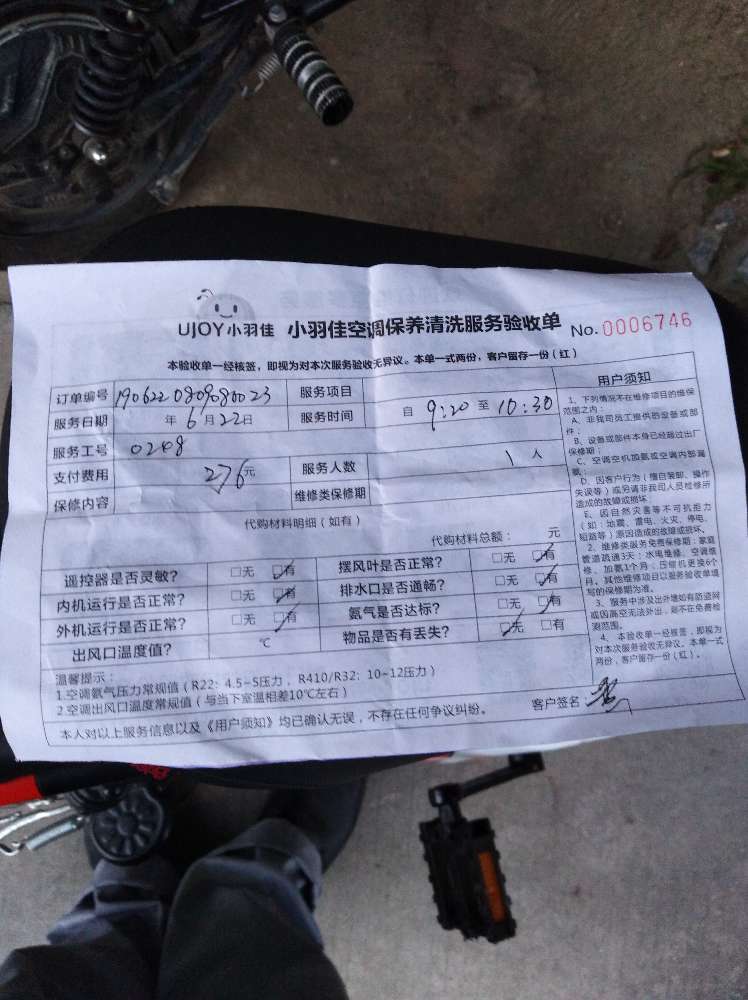 UJOY小羽佳 小羽佳空调保养清洗服务验收单 No.0006746
本验收单一经核签，即视为对本次服务验收无异议。本单一式两份，客户留存一份（红）
订单编号 1906220809080023 服务项目
服务日期 年6月22日 服务时间 自 9:20 至 10:30
服务工号 0208
支付费用 276元 服务人数 1 人
保修内容 维修类保修期
代购材料明细（如有）
代购材料总额： 元
遥控器是否灵敏？ □无 □有 摆风叶是否正常？ □无 □有
内机运行是否正常？ □无 □有 排水口是否通畅？ □无 □有
外机运行是否正常？ □无 □有 氨气是否达标？ □无 □有
出风口温度值？ ℃ 物品是否有丢失？ □无 □有
温馨提示：
1.空调氨气压力常规值（R22：4.5~5压力，R410/R32：10~12压力）
2.空调出风口温度常规值（与当下室温相差10℃左右）
本人对以上服务信息以及《用户须知》均已确认无误，不存在任何争议纠纷。
客户签名：
用户须知
1、下列情况不在维修项目的维保
范围之内：
A、非我司员工提供的设备或部
件；
B、设备或部件本身已经超过出厂
保修期；
C、空调空机加氨或空调内部漏
氨；
D、因客户行为（擅自装卸、操作
失误等）或另请非我司人员检修所
造成的故障或损坏；
E、因自然灾害等不可抗拒力
（如：地震、雷电、火灾、停电、
短路等）原因造成的故障或损坏。
2、维修类服务免费保修期：家庭
管道疏通3天；水电维修、空调维
修、加氨1个月；压缩机更换6个
月。其他维修项目以服务验收单填
写的保修期为准。
3、服务中涉及出外墙如有防盗网
或因高空无法外出，则不在免费检
测范围。
4、本验收单一经核签，即视为
对本次服务验收无异议。本单一式
两份，客户留存一份（红）。